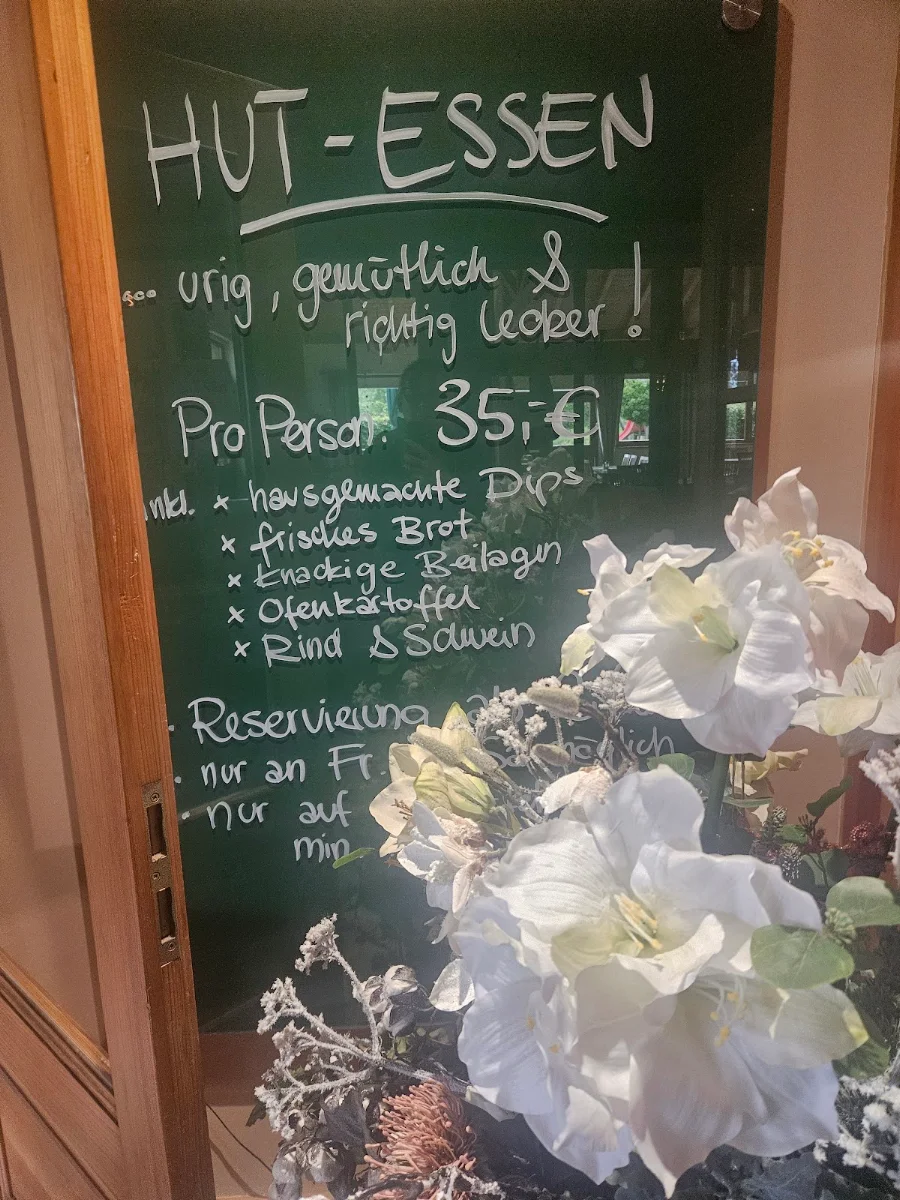 HUT - ESSEN
... urig, gemütlich &
richtig lecker!
Pro Person: 35,-€
inkl. x hausgemachte Dips
x frisches Brot
x knackige Beilagen
x Ofenkartoffel
x Rind & Schwein
· Reservierung
· nur an Fr.
· nur auf
min